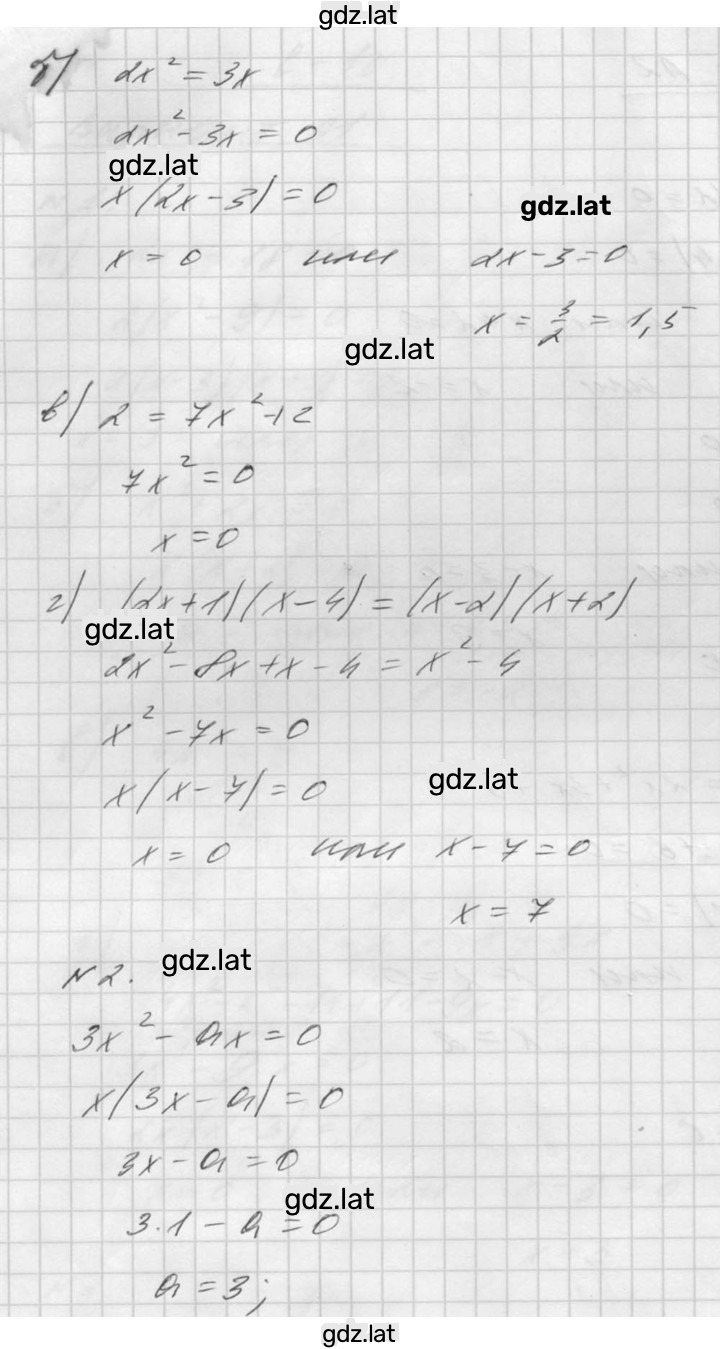 gdz.lat
б) 2x² = 3x
2x² - 3x = 0
gdz.lat
x(2x - 3) = 0
gdz.lat
x = 0 или 2x - 3 = 0
x = 3/2 = 1,5
gdz.lat
в) 2 = 7x² + 2
7x² = 0
x = 0
г) (2x + 1)(x - 4) = (x - 2)(x + 2)
gdz.lat
2x² - 8x + x - 4 = x² - 4
x² - 7x = 0
gdz.lat
x(x - 7) = 0
x = 0 или x - 7 = 0
x = 7
gdz.lat
N 2.
3x² - ax = 0
x(3x - a) = 0
3x - a = 0
gdz.lat
3·1 - a = 0
a = 3;
gdz.lat